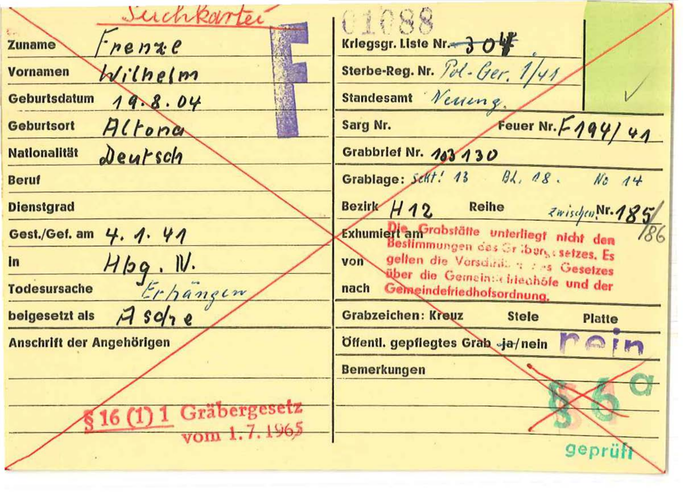 Suchkartei
Zuname Frenze
Vornamen Wilhelm
Geburtsdatum 19.8.04
Geburtsort Altona
Nationalität Deutsch
Beruf
Dienstgrad
Gest./Gef. am 4.1.41
in Hbg. N.
Todesursache Erhängen
beigesetzt als Asche
Anschrift der Angehörigen
§ 16 (1) 1 Gräbergesetz
vom 1.7.1965
F
01088
Kriegsgr. Liste Nr. 304
Sterbe-Reg. Nr. Pol-Ger. 1/41
Standesamt Neueng.
Sarg Nr. Feuer Nr. F194/41
Grabbrief Nr. 103130
Grablage: Scht! 13 Bl. 18. No 14
Bezirk H12 Reihe zwischen Nr. 185/
186
Exhumiert am
von
nach
Die Grabstätte unterliegt nicht den
Bestimmungen des Gräbergesetzes. Es
gelten die Vorschriften des Gesetzes
über die Gemeindefriedhöfe und der
Gemeindefriedhofsordnung.
Grabzeichen: Kreuz Stele Platte
Öffentl. gepflegtes Grab ja/nein nein
Bemerkungen
§ 6a
geprüft